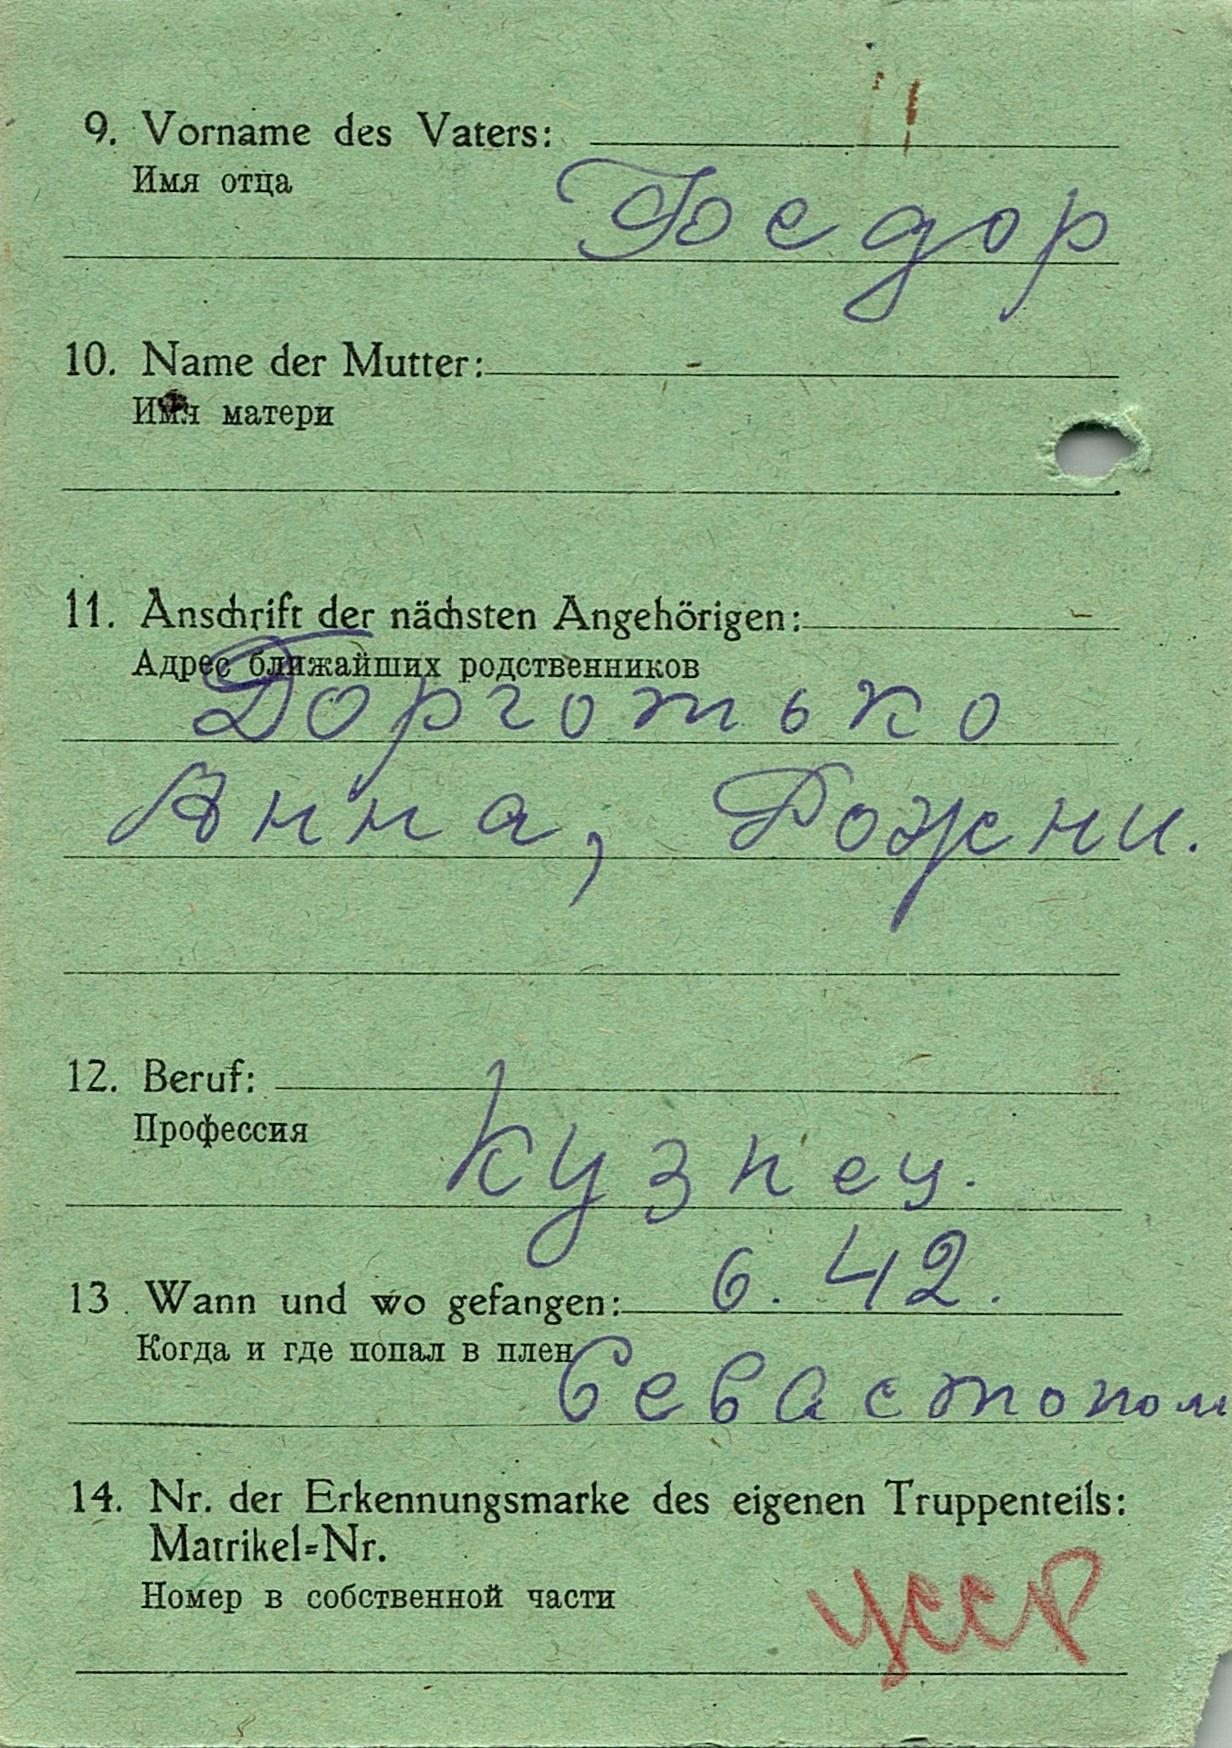 9. Vorname des Vaters:
Имя отца
Федор
10. Name der Mutter: -
Имя матери
11. Anschrift der nächsten Angehörigen:
Адрес ближайших родственников
Дорготько
Анна, Рожни.
12. Beruf:
Профессия
Кузнец.
13. Wann und wo gefangen: 6. 42.
Когда и где попал в плен
Севастопол
14. Nr. der Erkennungsmarke des eigenen Truppenteils:
Matrikel=Nr.
Номер в собственной части
УССР